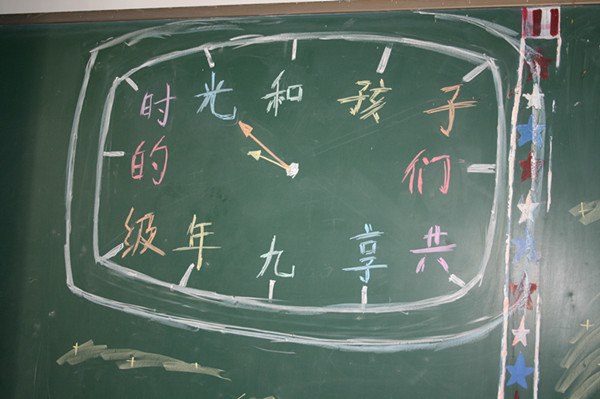 和孩子们共享九年级的时光